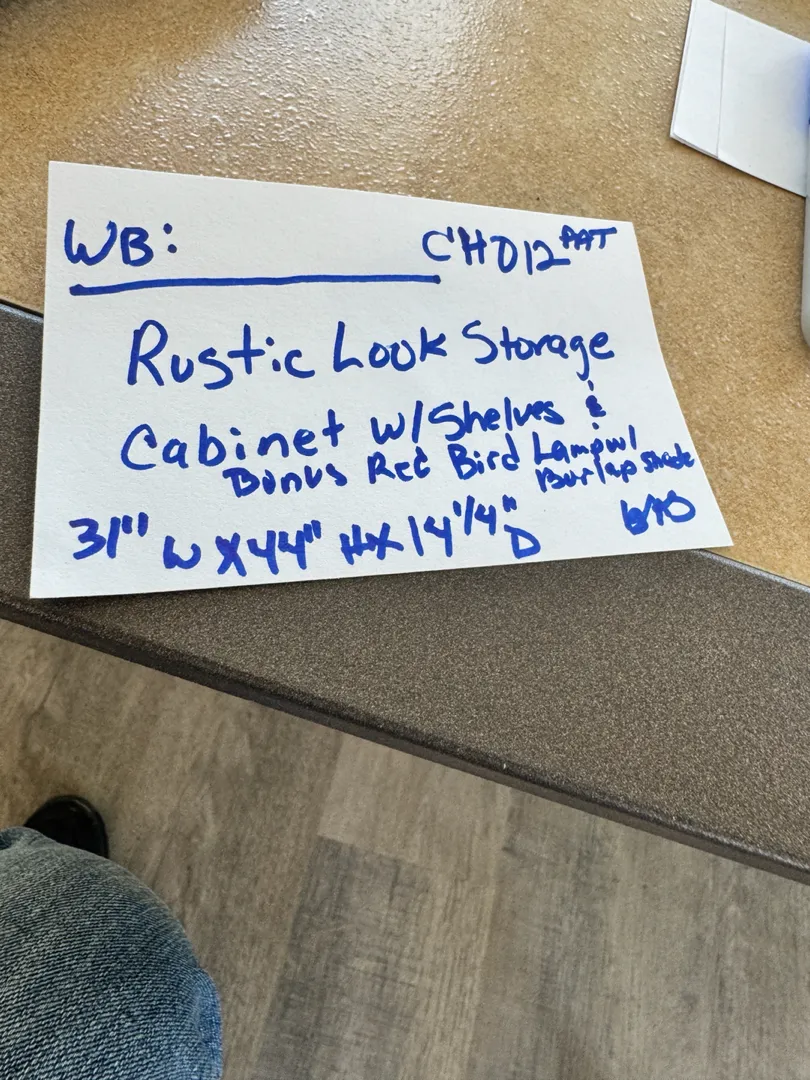 WB: CHD12 PAT
Rustic Look Storage
Cabinet w/Shelves &
Bonus Red Bird Lamp w/
Burlap Shade
31" W X 44" H X 14 1/4" D